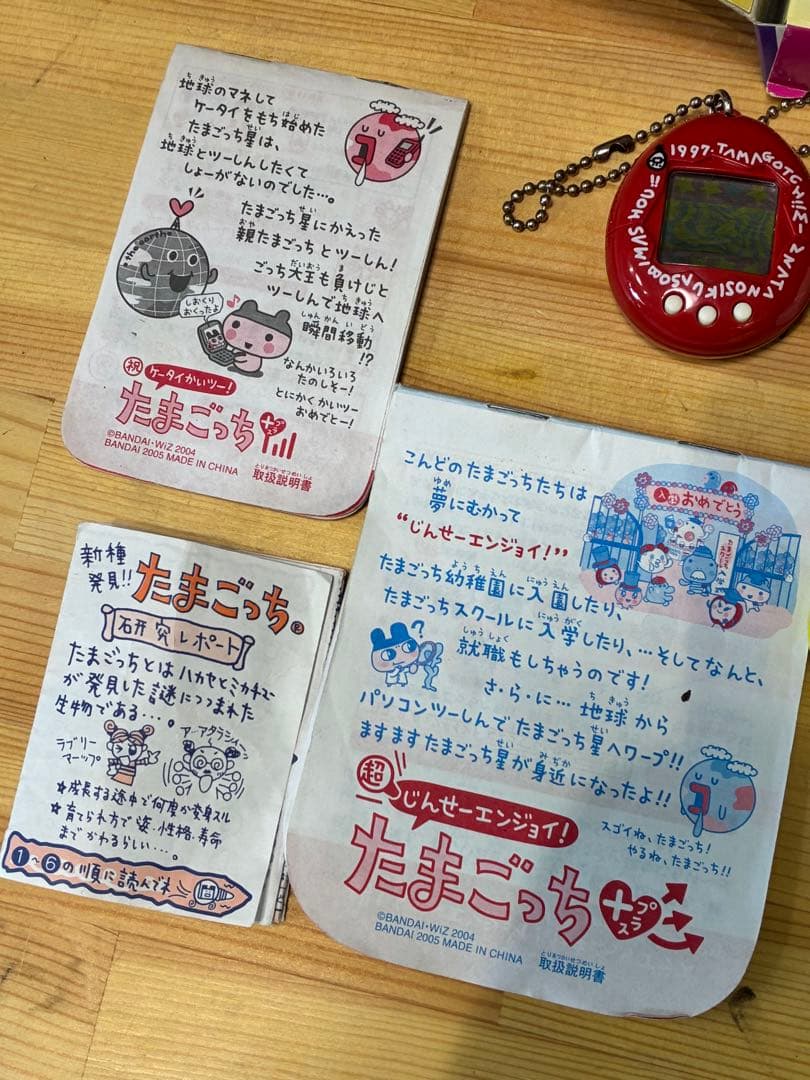 地球のマネして
ケータイをもち始めた
たまごっち星は、
地球とツーしんしたくて
しょーがないのでした…。
たまごっち星にかえった
親たまごっちとツーしん!
ごっち大王も負けじと
ツーしんで地球へ
瞬間移動
!?
the earth
しおくり
おくったよ
なんかいろいろ
たのしそー!
とにかくかいツー
おめでとー!
祝 ケータイかいツー!
たまごっち
プラス
©BANDAI・WiZ 2004
BANDAI 2005 MADE IN CHINA
取扱説明書
1997・TAMAGOTCH
新種
発見!!
たまごっち
研究レポート
たまごっちとはハカセとミカチュー
が発見した謎につつまれた
生物である…。
ラブリー
マーップ
★成長する途中で何度か変身スル
★育てられ方で姿、性格、寿命
までかわるらしい…。
1〜6の順に読んでネ
こんどのたまごっちたちは
夢にむかって
"じんせーエンジョイ!"
入園おめでとう
たまごっち幼稚園に入園したり、
たまごっちスクールに入学したり、…そしてなんと、
就職もしちゃうのです!
?
さ・ら・に…地球から
パソコンツーしんでたまごっち星へワープ!!
ますますたまごっち星が身近になったよ!!
スゴイね、たまごっち!
やるね、たまごっち!!
超 じんせーエンジョイ!
たまごっち
プラス
©BANDAI・WiZ 2004
BANDAI 2005 MADE IN CHINA
取扱説明書